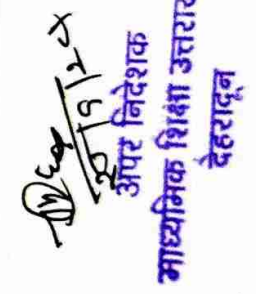 20/9/24
अपर निदेशक
माध्यमिक शिक्षा उत्तरा
देहरादून